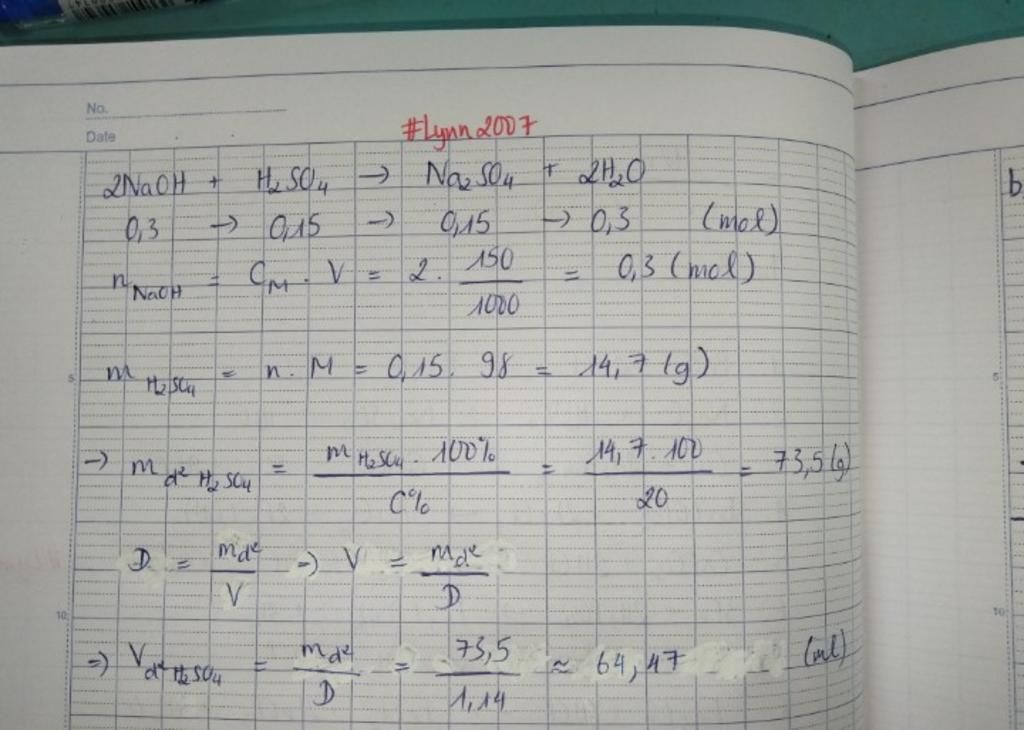 No.
Date
#Lynn2007
2NaOH + H₂SO₄ → Na₂SO₄ + 2H₂O
0,3 → 0,15 → 0,15 → 0,3 (mol)
n NaOH = C_M . V = 2 . 150/1000 = 0,3 (mol)
m H₂SO₄ = n . M = 0,15 . 98 = 14,7 (g)
→ m d² H₂SO₄ = m H₂SO₄ . 100% / C% = 14,7 . 100 / 20 = 73,5 (g)
D = m d² / V => V = m d² / D
=> V d² H₂SO₄ = m d² / D = 73,5 / 1,14 ≈ 64,47 (ml)
5
10
b
5
10